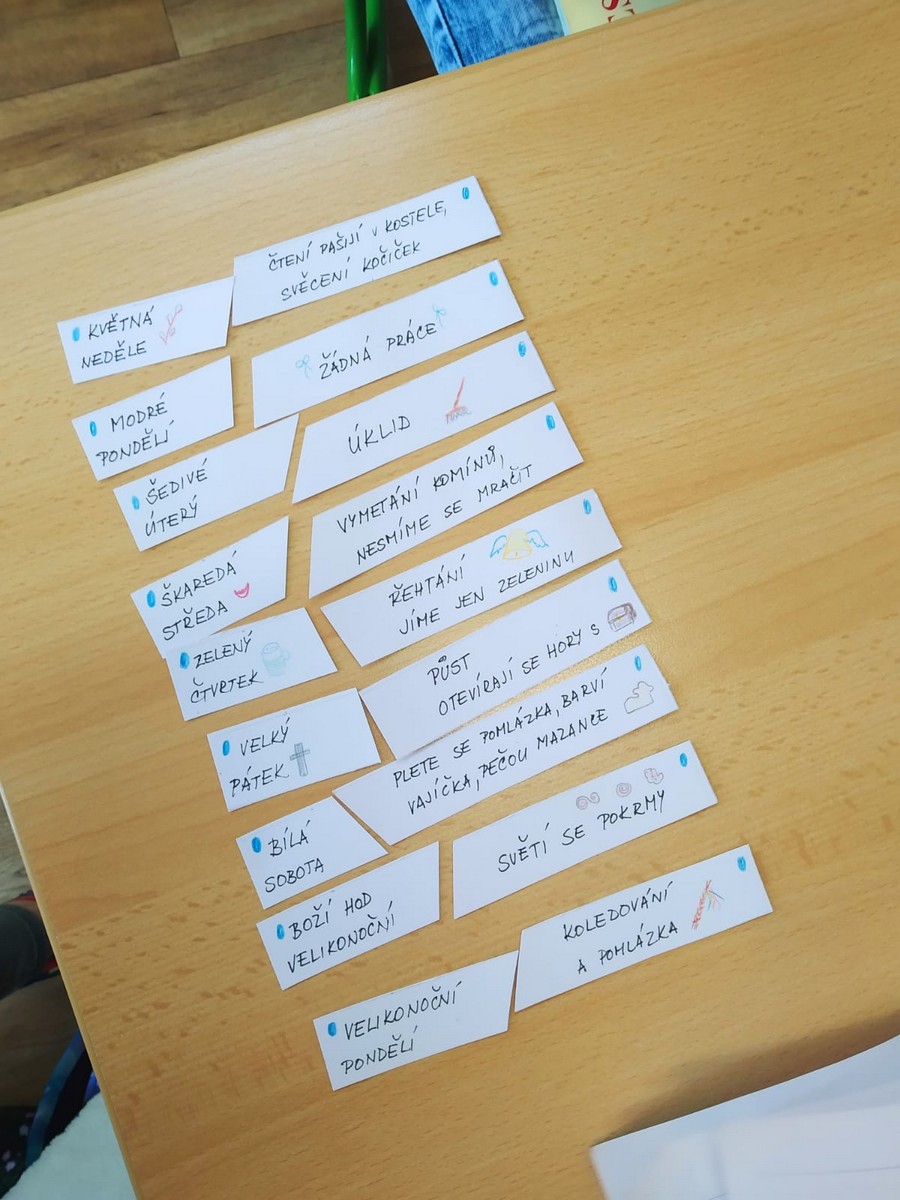 KVĚTNÁ
NEDĚLE
ČTENÍ PAŠIJÍ V KOSTELE,
SVĚCENÍ KOČIČEK
MODRÉ
PONDĚLÍ
ŽÁDNÁ PRÁCE
ŠEDIVÉ
ÚTERÝ
ÚKLID
ŠKAREDÁ
STŘEDA
VYMETÁNÍ KOMÍNŮ,
NESMÍME SE MRAČIT
ZELENÝ
ČTVRTEK
ŘEHTÁNÍ
JÍME JEN ZELENINU
VELKÝ
PÁTEK
PŮST
OTEVÍRAJÍ SE HORY S
BÍLÁ
SOBOTA
PLETE SE POMLÁZKA, BARVÍ
VAJÍČKA, PEČOU MAZANCE
BOŽÍ HOD
VELIKONOČNÍ
SVĚTÍ SE POKRMY
VELIKONOČNÍ
PONDĚLÍ
KOLEDOVÁNÍ
A POMLÁZKA